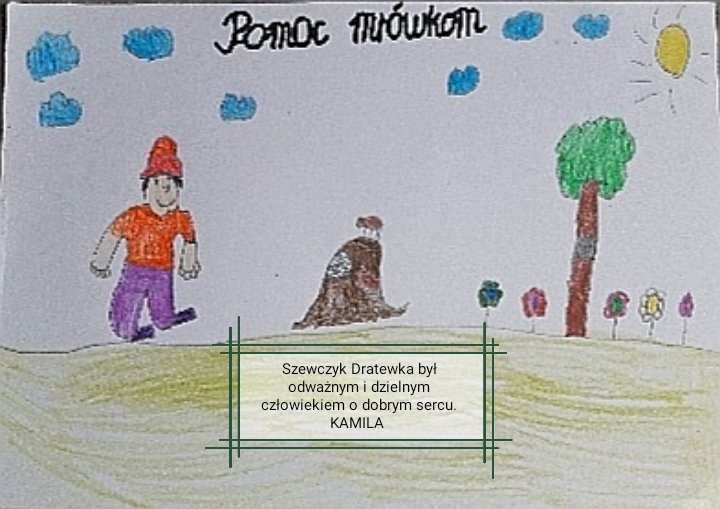 Pomoc mrówkom
Szewczyk Dratewka był
odważnym i dzielnym
człowiekiem o dobrym sercu.
KAMILA